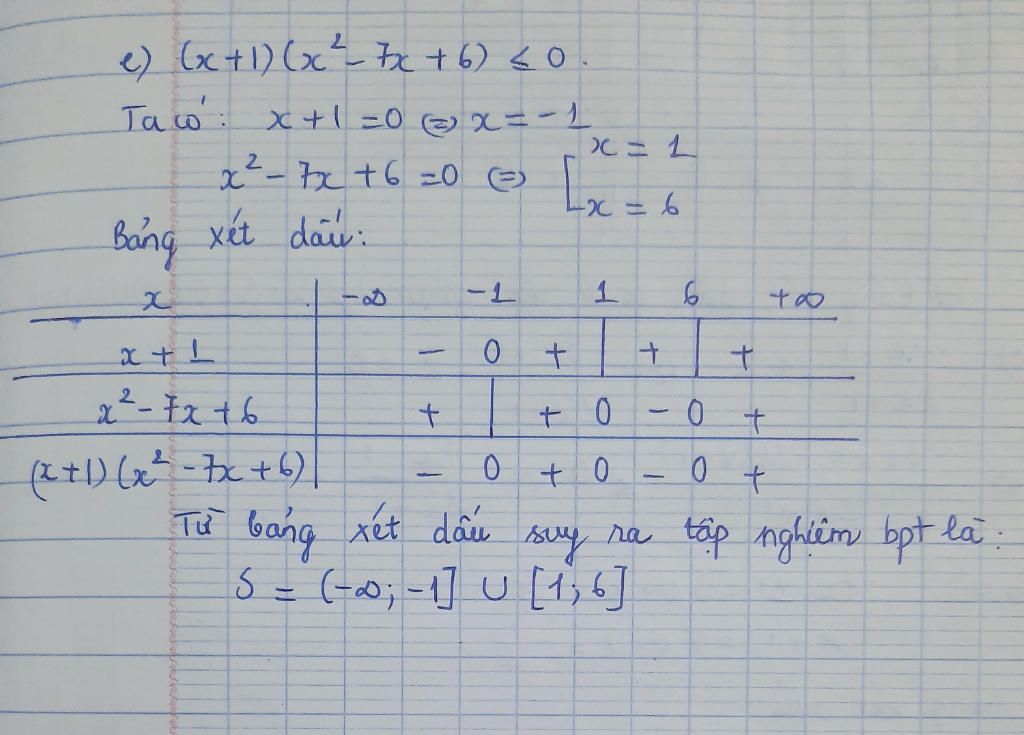 e) (x+1)(x² - 7x + 6) ≤ 0.
Ta có: x + 1 = 0 ⇔ x = -1
x² - 7x + 6 = 0 ⇔ [ x = 1
x = 6
Bảng xét dấu:
x | -∞ -1 1 6 +∞
x + 1 | - 0 + | + | +
x² - 7x + 6 | + | + 0 - 0 +
(x+1)(x² - 7x + 6) | - 0 + 0 - 0 +
Từ bảng xét dấu suy ra tập nghiệm bpt là:
S = (-∞; -1] ∪ [1; 6]